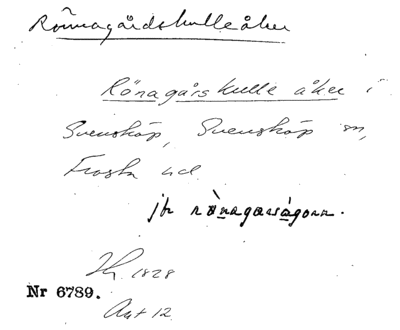 Rönnagårdskulleåker
Rönagårs kulle åker i
Svensköp, Svensköp sn,
Frosta hd.
jfr rònagarsågonn.
Lh. 1828
Nr 6789.
Akt 12